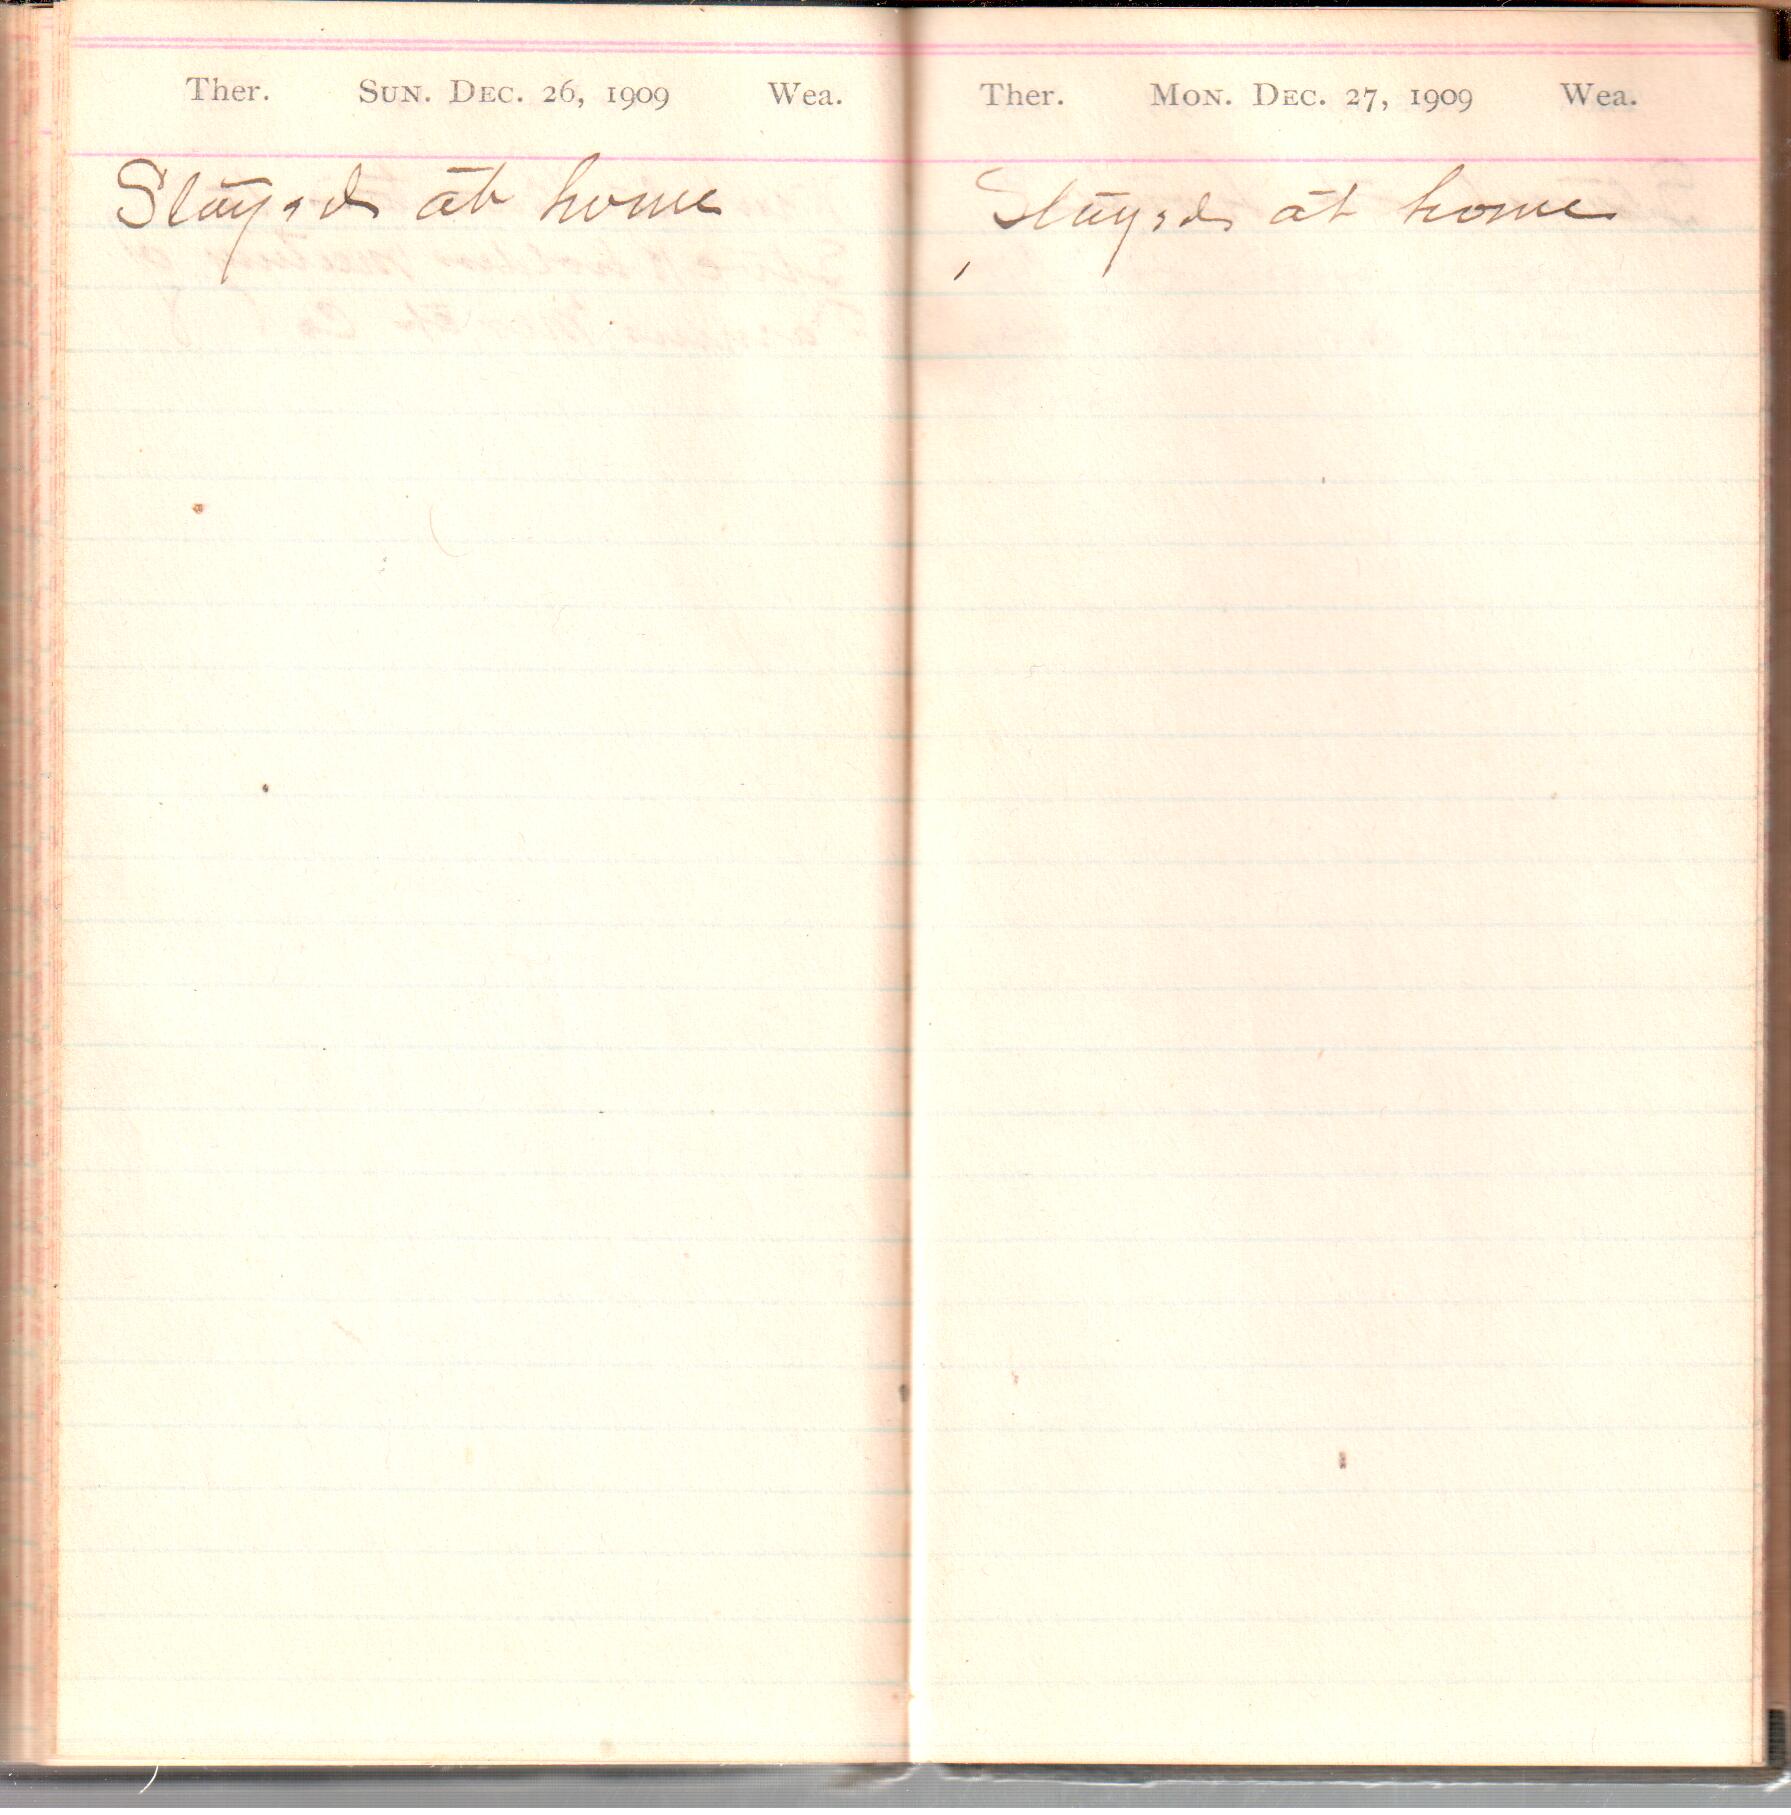 Ther. Sun. Dec. 26, 1909 Wea.
Stayed at home
Ther. Mon. Dec. 27, 1909 Wea.
Stayed at home